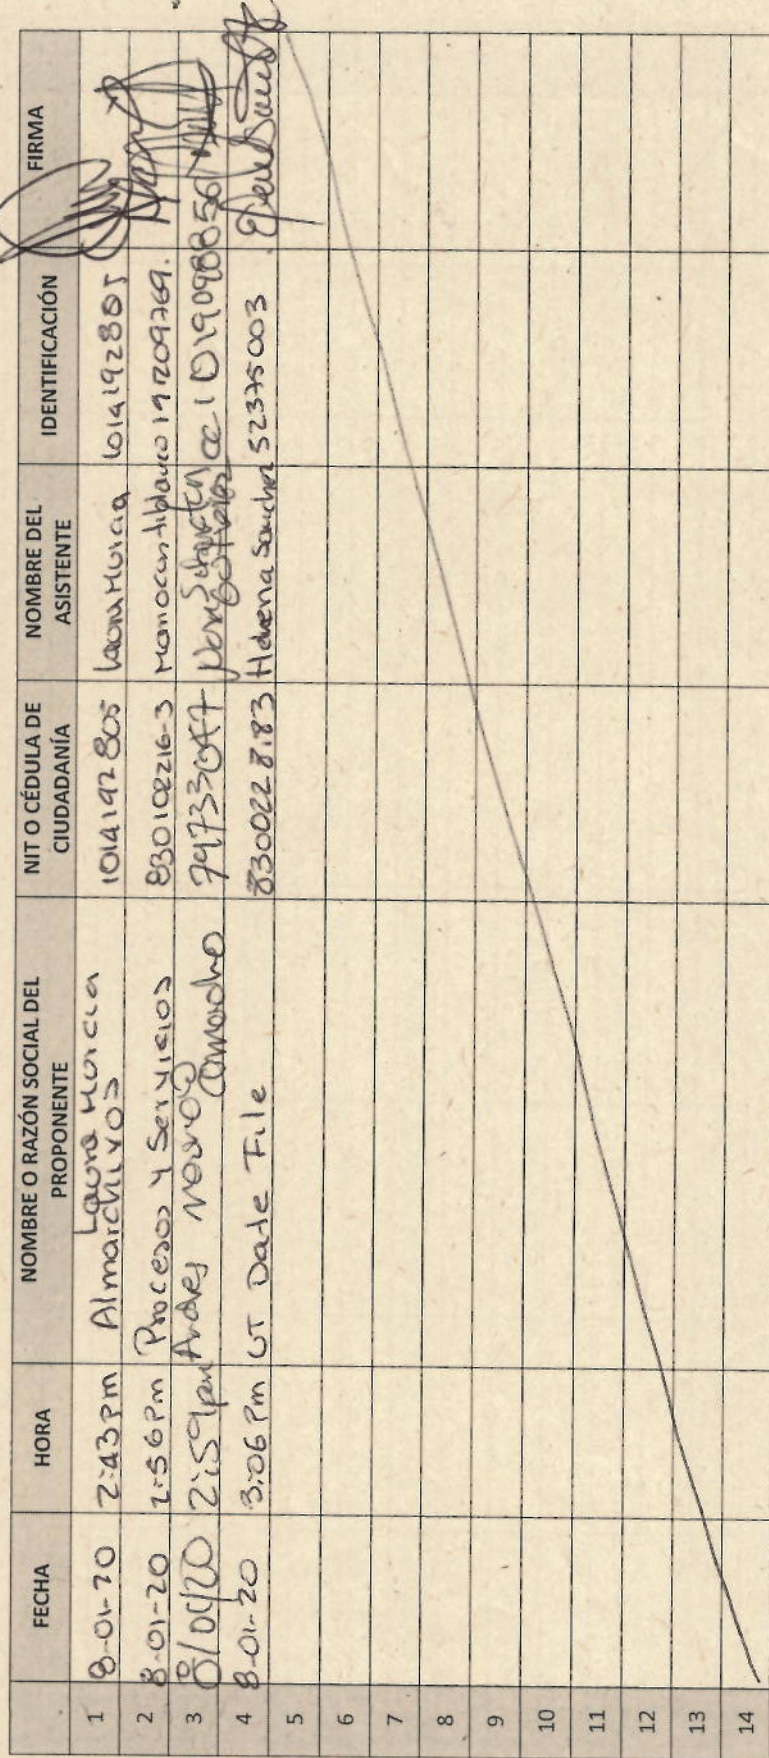 FECHA HORA NOMBRE O RAZÓN SOCIAL DEL PROPONENTE NIT O CÉDULA DE CIUDADANÍA NOMBRE DEL ASISTENTE IDENTIFICACIÓN FIRMA
1 8-01-20 2:43 pm Laura Murcia Almarchivos 1014192805 Laura Murcia 1014192805
2 8-01-20 2:56 Pm Procesos y Servicios 830102216-3 19209769.
3 2:59 pm Andres Camacho 79733047 cc 1019098856
4 8-01-20 3:06 Pm UT Date File 830022 8183 Sanchez 52375003
5
6
7
8
9
10
11
12
13
14